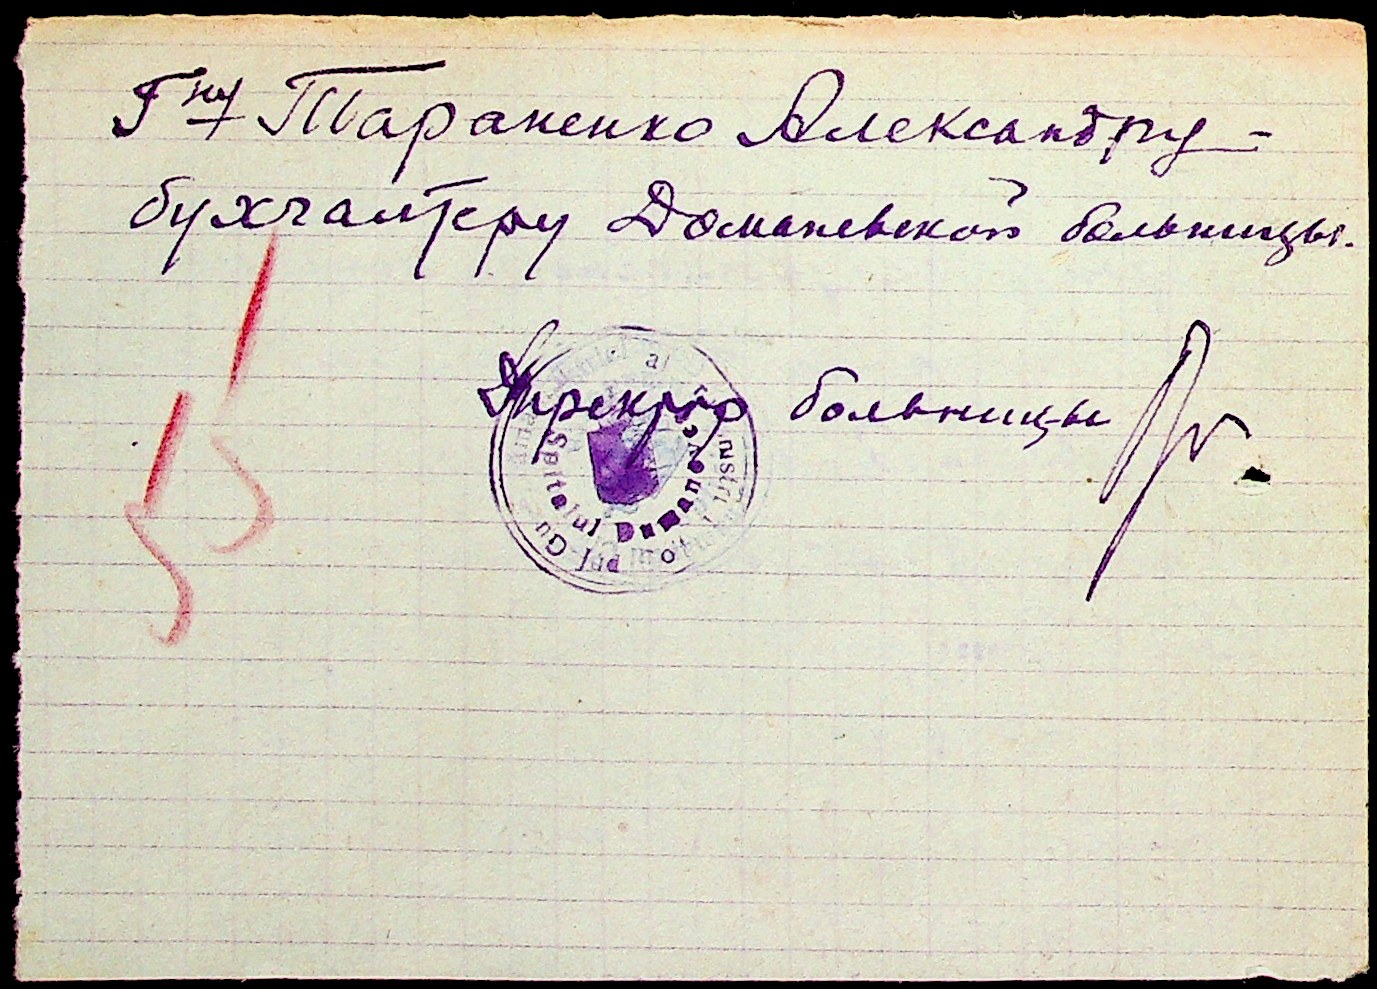 Гну Тараненко Александру -
бухгалтеру Доманевской больницы.
Директор больницы
al
Spitalul Dumanovca